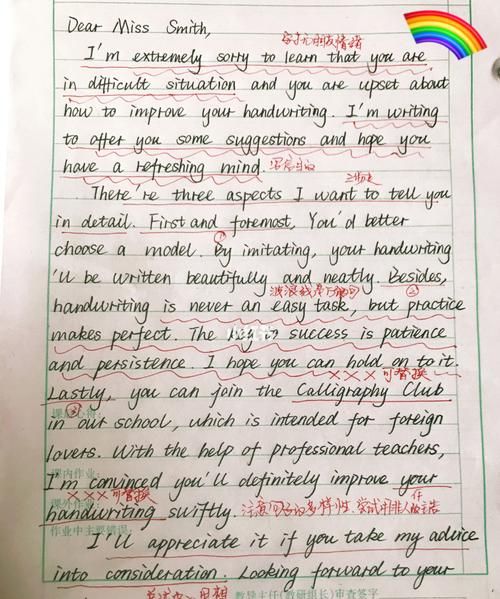 Dear Miss Smith,
I'm extremely sorry to learn that you are
in difficult situation and you are upset about
how to improve your handwriting. I'm writing
to offer you some suggestions and hope you
have a refreshing mind.
There're three aspects I want to tell you
in detail. First and foremost, You'd better
①
choose a model. By imitating, your handwriting
'll be written beautifully and neatly. Besides,
波浪线是万能句 ②
handwriting is never an easy task, but practice
makes perfect. The to success is patience
and persistence. I hope you can hold on to it.
××× 可替换
Lastly, you can join the Calligraphy Club
③
in our school, which is intended for foreign
lovers. With the help of professional teachers,
课内作业:
I'm convinced you'll definitely improve your
××× 可替换
课外作业
handwriting swiftly. 注意句子的多样性. 尝试用非人称主语
作业中主要错误:
I'll appreciate it if you take my advice
into consideration. Looking forward to your
教导主任(教研组长)审查签字